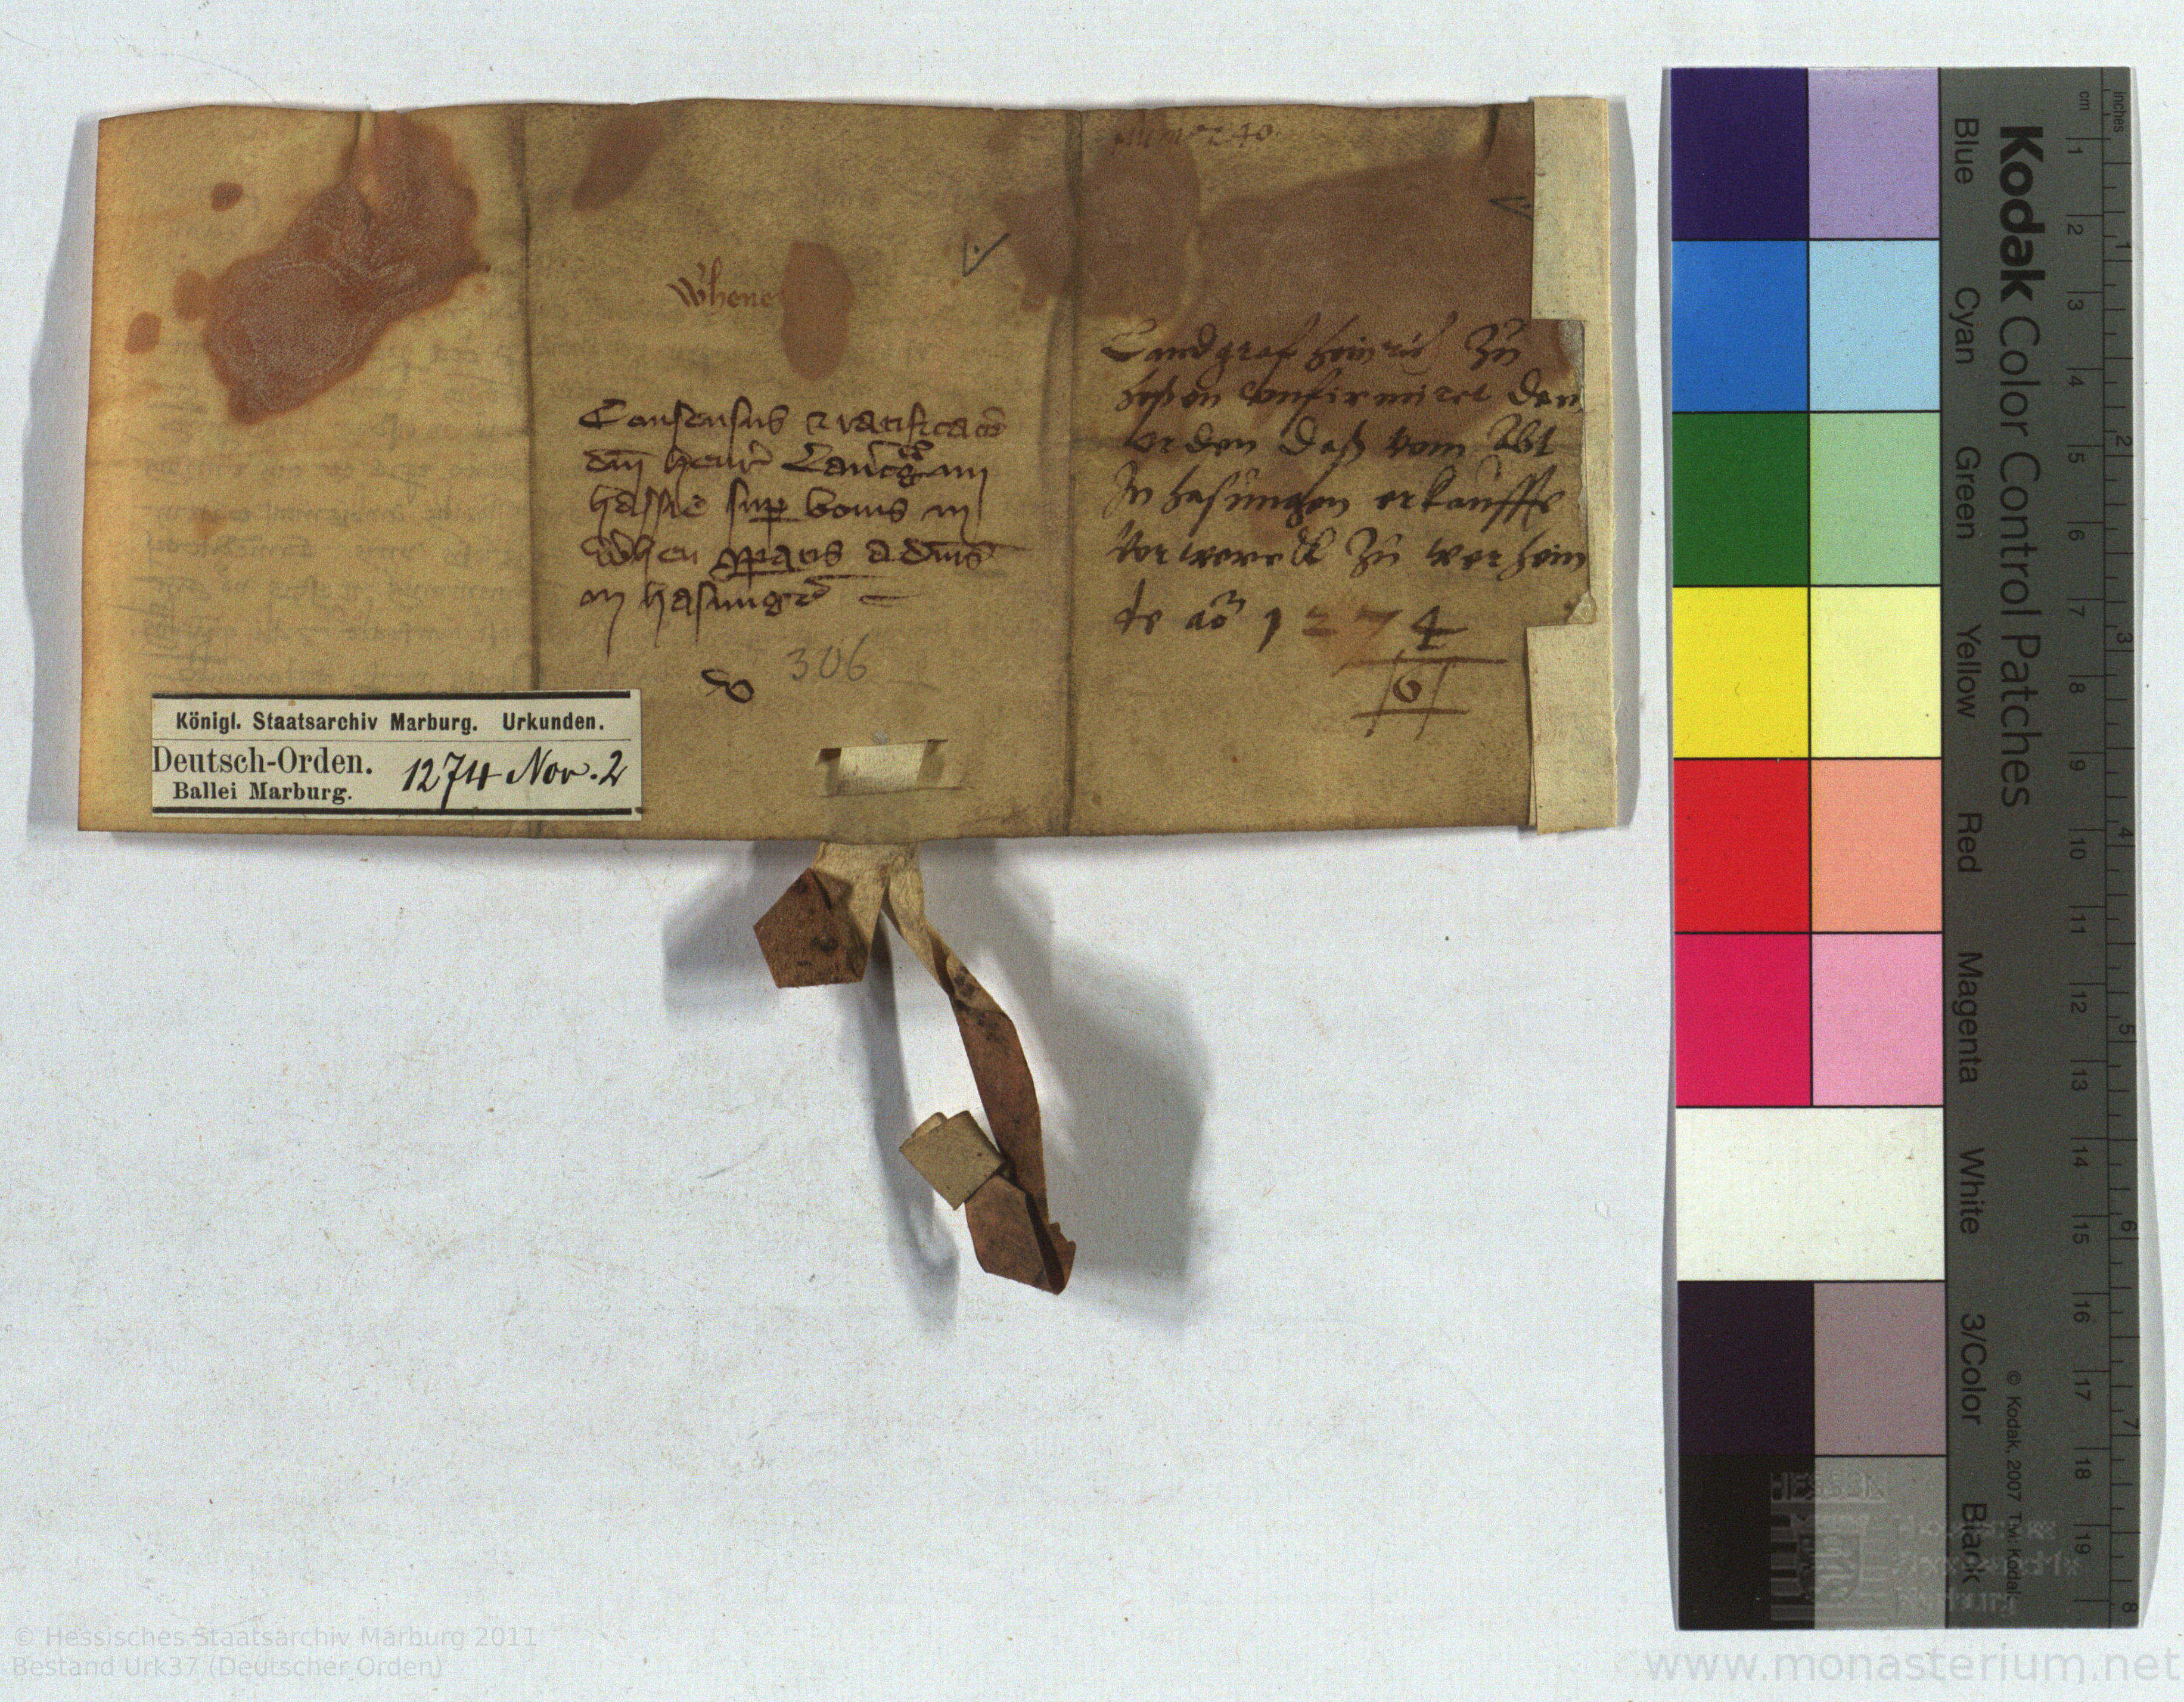 Numer 40
Whene
Consensus et ratificatio
dni Henr Lantgravii
hassie super bonis in
When comparatis a dominis
in hasungen
306
Landgraf Heinrich Zu
Heßen confirmiret Den
orden Daß vom Abt
Zu Hasungen erkauffte
Vorwerck Zu werhein
de ao 1274
6
Königl. Staatsarchiv Marburg. Urkunden.
Deutsch-Orden.
Ballei Marburg.
1274 Nov. 2
Kodak Color Control Patches
Blue Cyan Green Yellow Red Magenta White 3/Color Black
© Kodak, 2007 TM: Kodak
cm 1 2 3 4 5 6 7 8 9 10 11 12 13 14 15 16 17 18 19
inches 1 2 3 4 5 6 7 8
HESSEN
Hessisches
Staatsarchiv
Marburg
© Hessisches Staatsarchiv Marburg 2011
Bestand Urk37 (Deutscher Orden)
www.monasterium.net